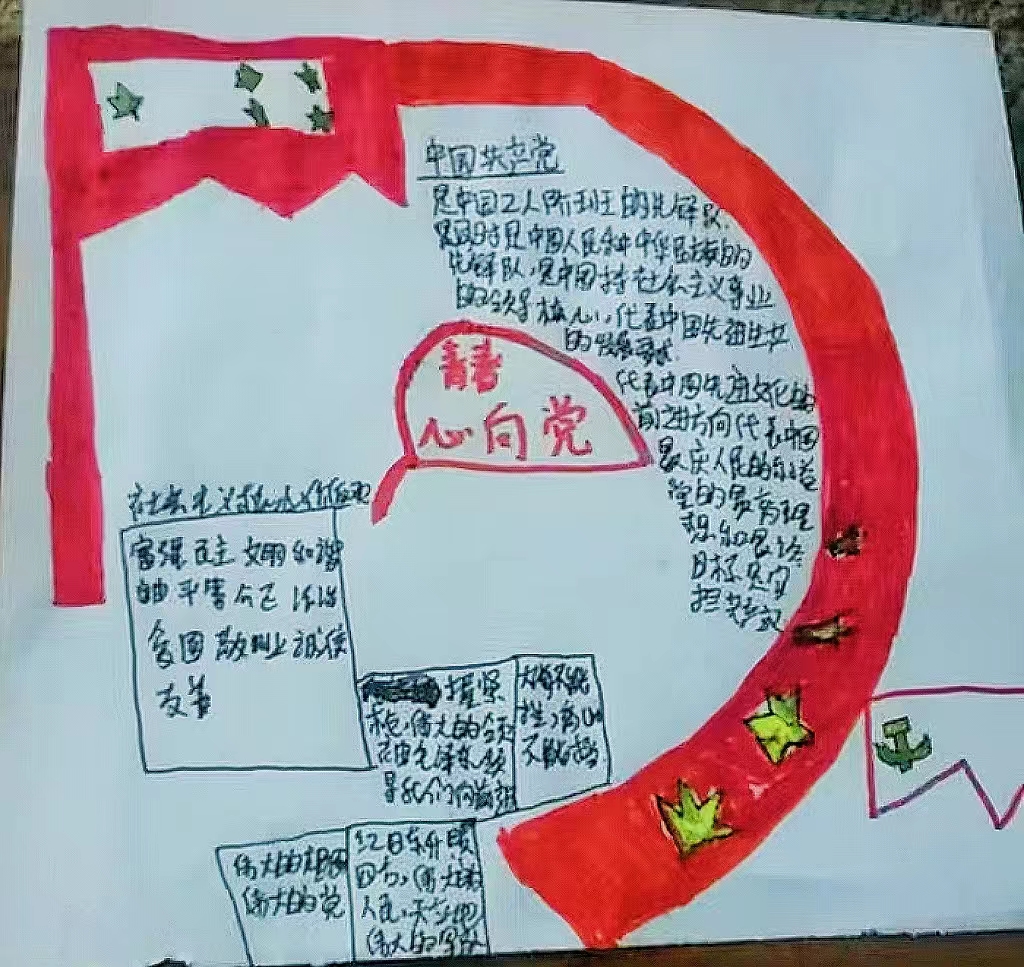 中国共产党
是中国工人阶级的先锋队.
是同时是中国人民和中华民族的
先锋队,是中国特社会主义事业
的领导核心,代表中国先进生产
的发展要求.
代表中国先进文化的
前进方向代表中国
最广人民的利益
党的最高理
想和最终
目标是实
青春
心向党
社会主义核心价值观
富强 民主 文明 和谐
自由 平等 公正 法治
爱国 敬业 诚信
友善
握紧
伟大的领
导我们向前进
大海不能
高山
不能
伟大的祖国
伟大的党
红日东升照
四方,伟大的
人民,
伟大的军队